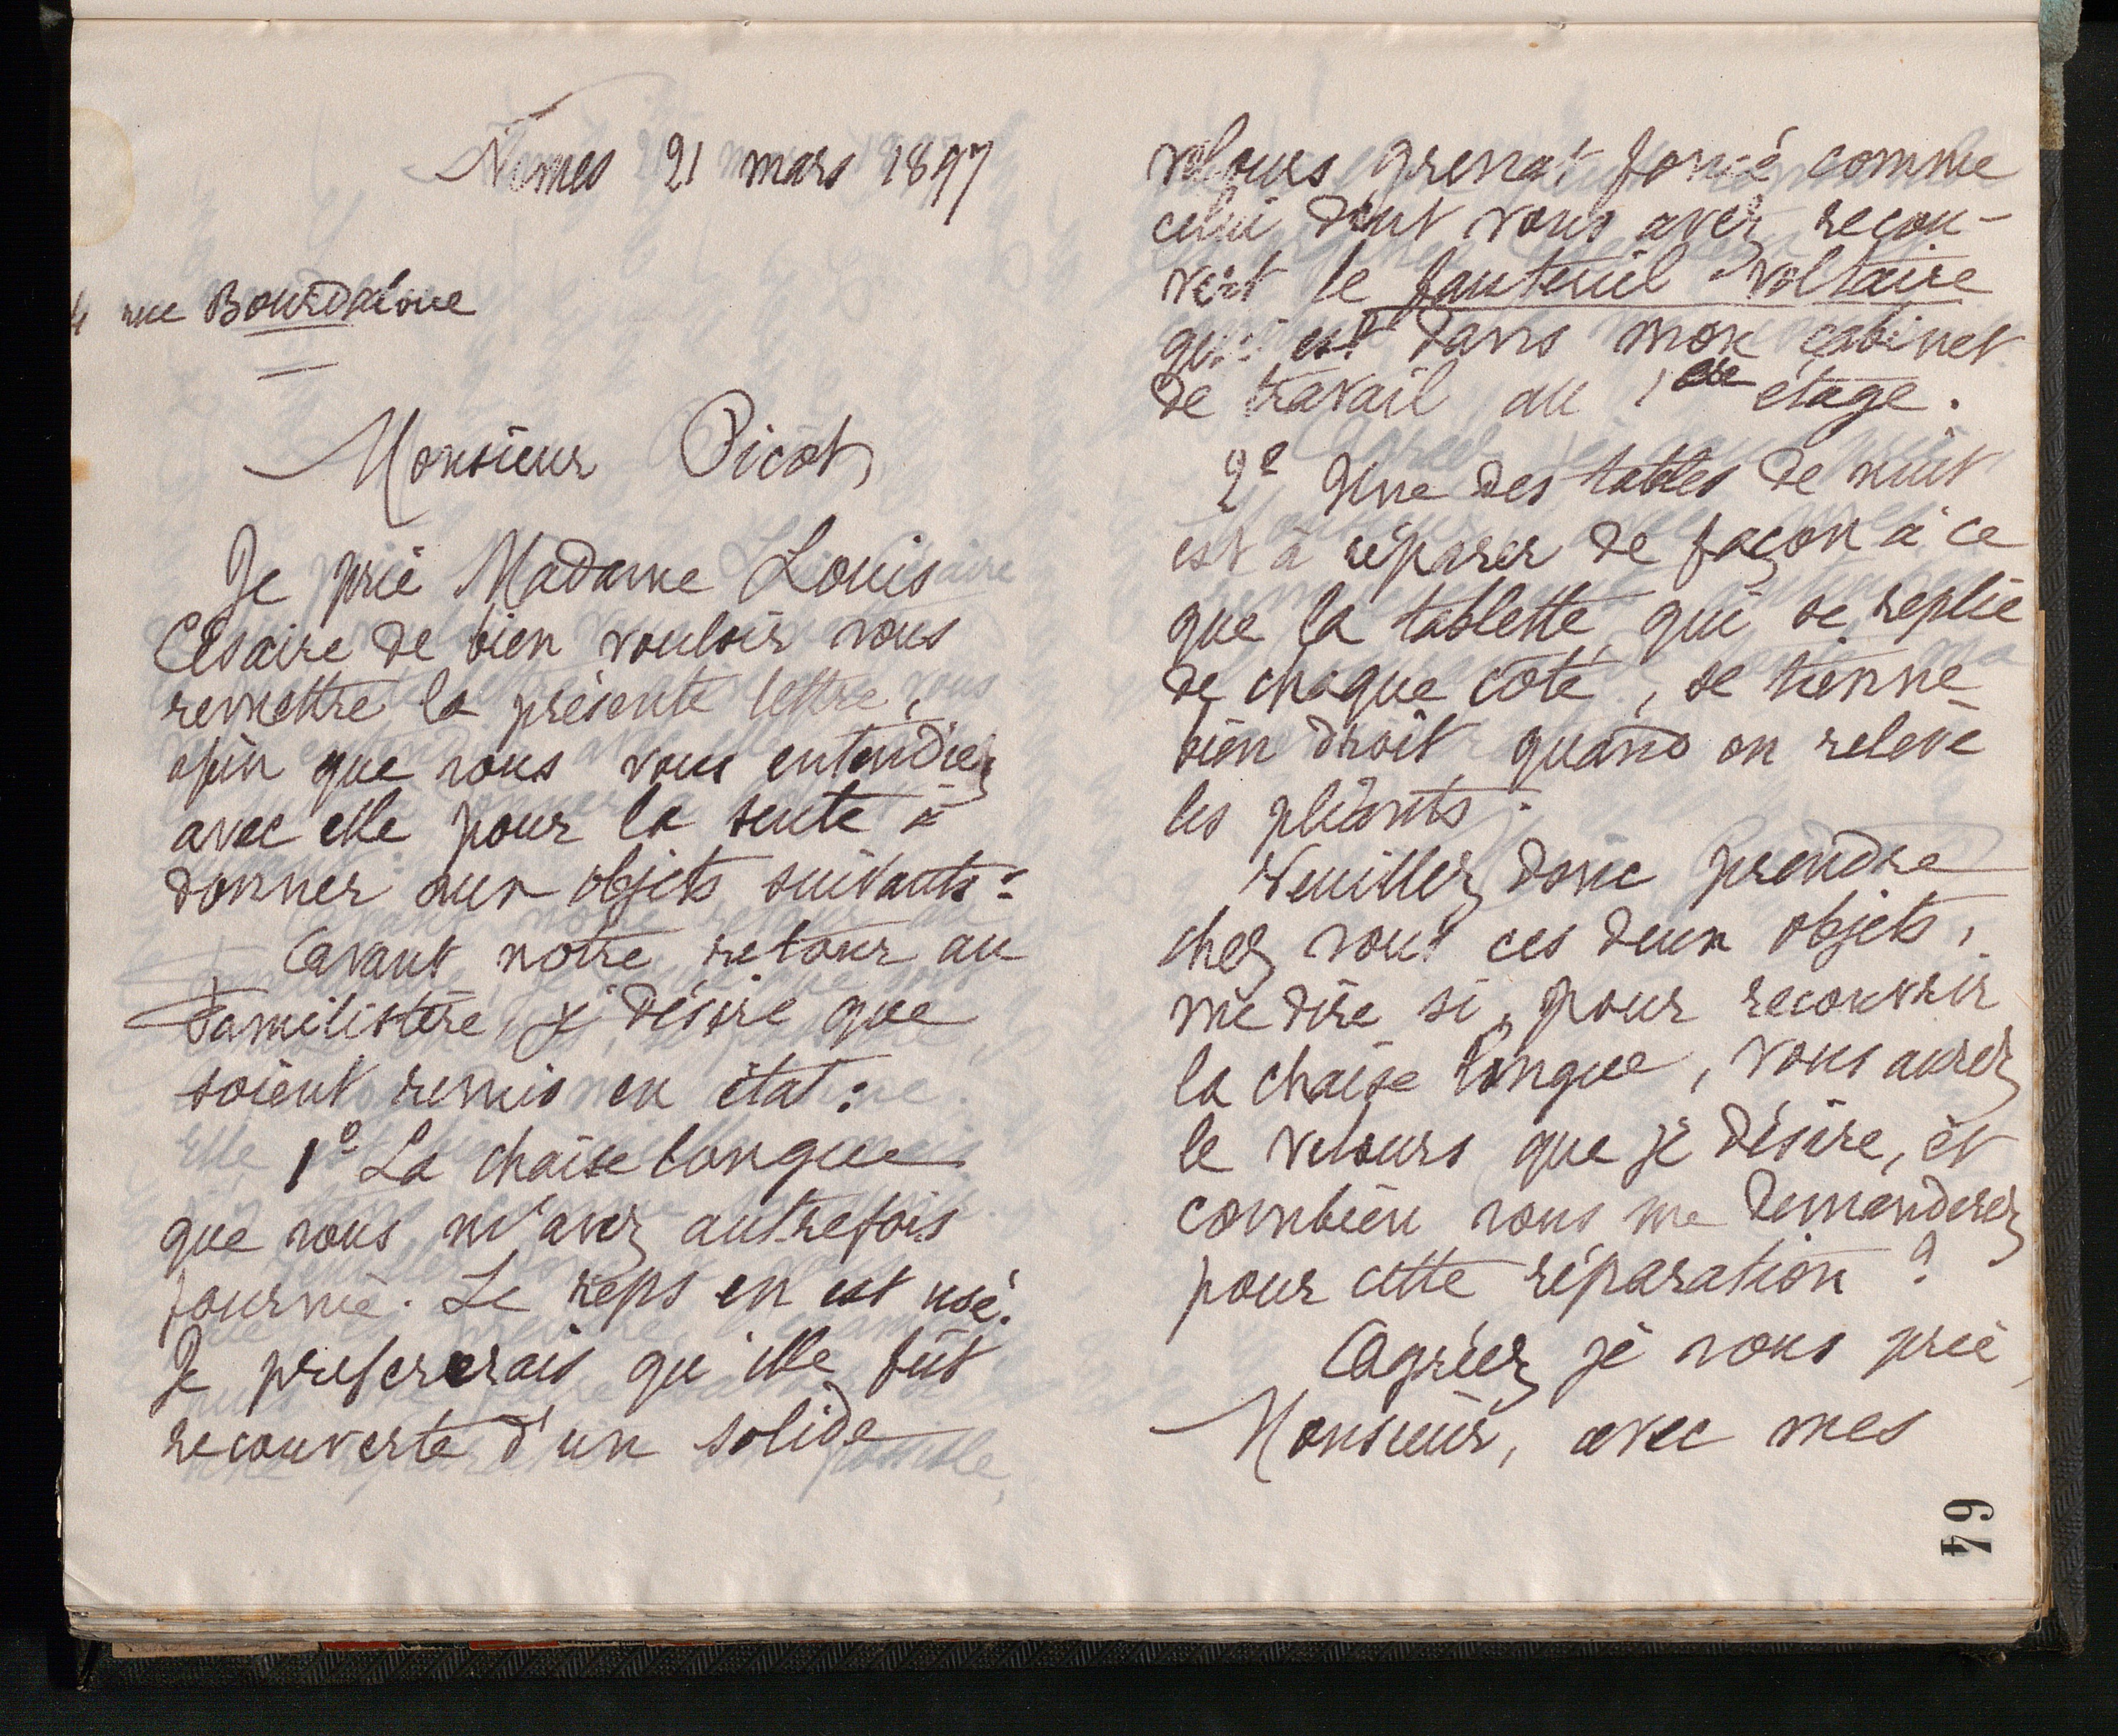 Nimes 21 mars 1897
4 rue Bourdaloue
Monsieur Picot,
Je prie Madame Louis
Césaire de bien vouloir vous
remettre la présente lettre,
afin que vous vous entendiez
avec elle pour la suite à
donner aux objets suivants:
Avant notre retour au
Familistère, je désire que
soient remis en état:
1º La chaise longue
que vous m'avez autrefois
fournie. Le reps en est usé.
Je préfererais qu'elle fût
recouverte d'un solide
velours grenat foncé comme
celui dont vous avez recou-
vert le fauteuil voltaire
qui est dans mon cabinet
de travail au 1er étage.
2º Une des tables de nuit
est à réparer de façon à ce
que la tablette, qui se replie
de chaque côté, se tienne
bien droit quand on relève
les pliants.
Veuillez donc prendre
chez vous ces deux objets,
me dire si, pour recouvrir
la chaise longue, vous aurez
le velours que je désire, et
combien vous me demanderez
pour cette réparation?
Agréez, je vous prie,
Monsieur, avec mes
64